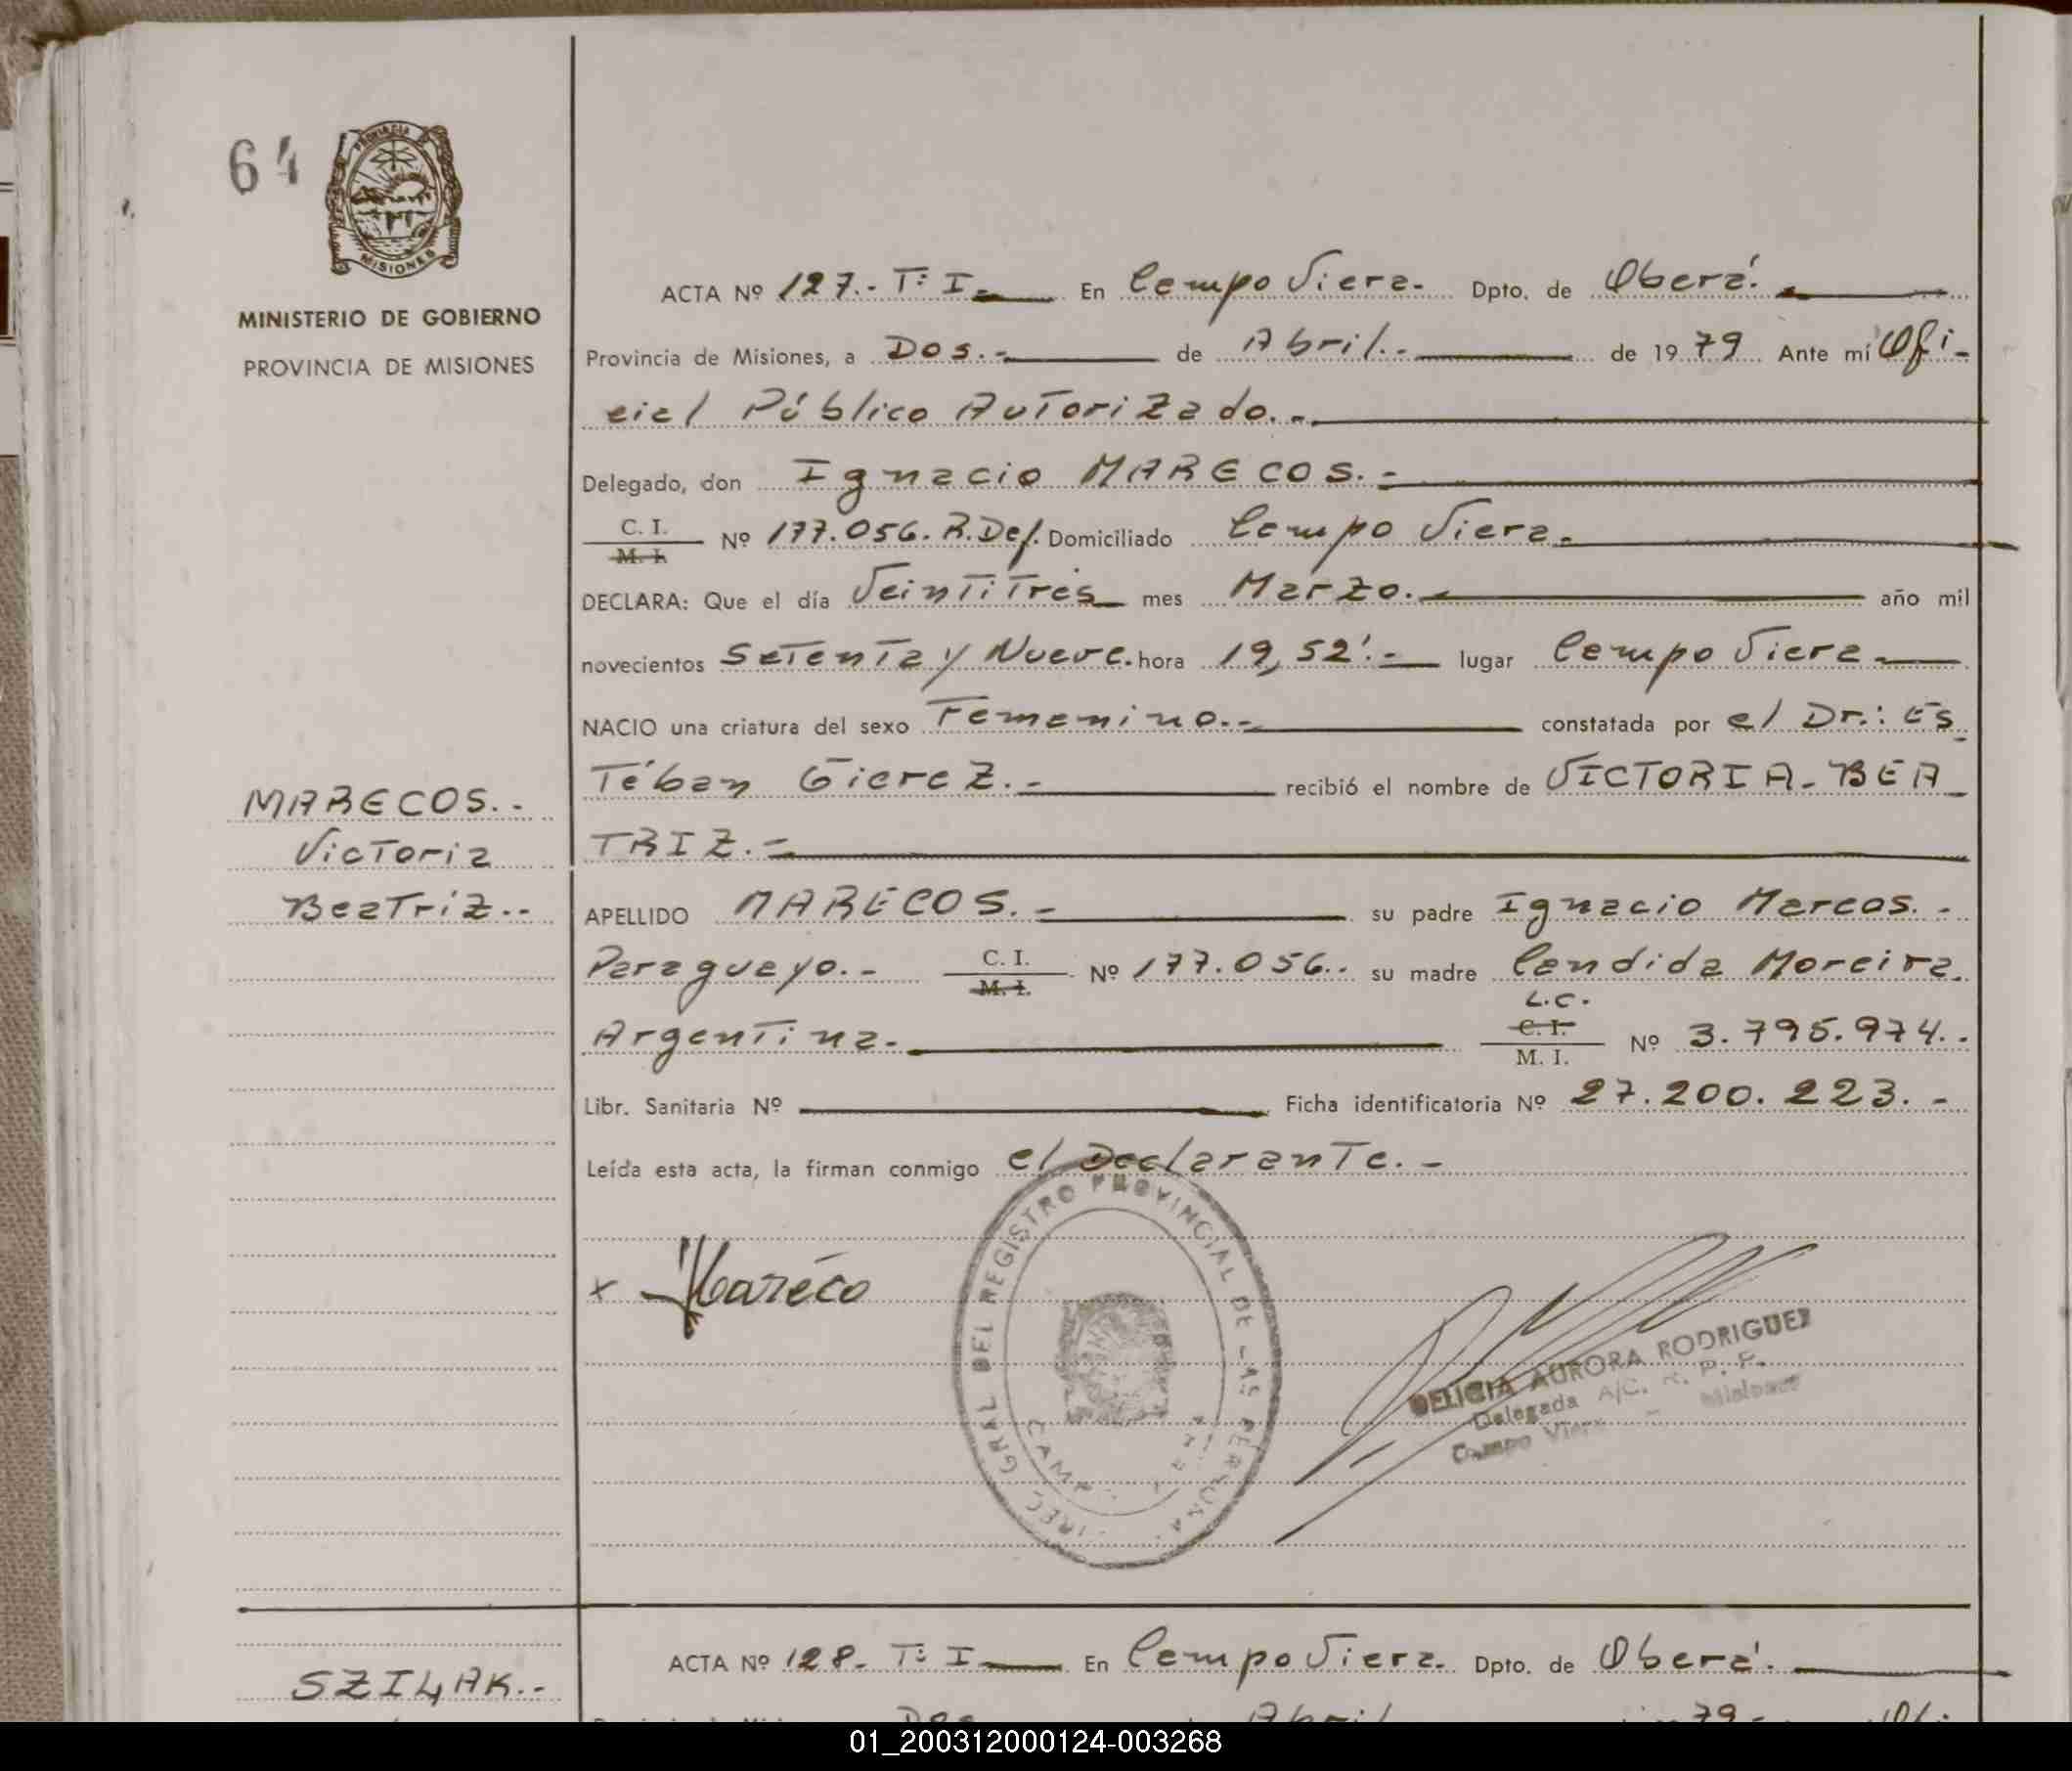 64
PROVINCIA
MISIONES
MINISTERIO DE GOBIERNO
PROVINCIA DE MISIONES
ACTA Nº 127.- T: I.- En Campo Viera.- Dpto. de Oberá.-
Provincia de Misiones, a Dos.- de Abril.- de 1979 Ante mí Ofi-
cial Público Autorizado.-
Delegado, don Ignacio MARECOS.-
C. I.
M. I.
Nº 177.056. R. Def. Domiciliado Campo Viera.
DECLARA: Que el día Veintitrés mes Marzo. año mil
novecientos Setenta y Nueve. hora 19,52'.- lugar Campo Viera
NACIO una criatura del sexo Femenino.- constatada por el Dr.: Es
téban Gierez.- recibió el nombre de VICTORIA-BEA
TRIZ.-
MARECOS.-
Victoria
Beatriz.-
APELLIDO MARECOS.- su padre Ignacio Marcos.-
Paraguayo.- C. I.
M. I.
Nº 177.056.. su madre Candida Moreira.
Argentina.
L.C.
C. I.
M. I.
Nº 3.795.974..
Libr. Sanitaria Nº Ficha identificatoria Nº 27.200.223.-
Leída esta acta, la firman conmigo el Declarante.-
x Mareco
GRAL DEL REGISTRO PROVINCIAL DE LAS PERSONAS
DELICIA AURORA RODRIGUEZ
Delegada A/C. R. P. P.
Campo Viera - Misiones
ACTA Nº 128- T: I En Campo Viera. Dpto. de Oberá.
SZILAK.-
01_200312000124-003268